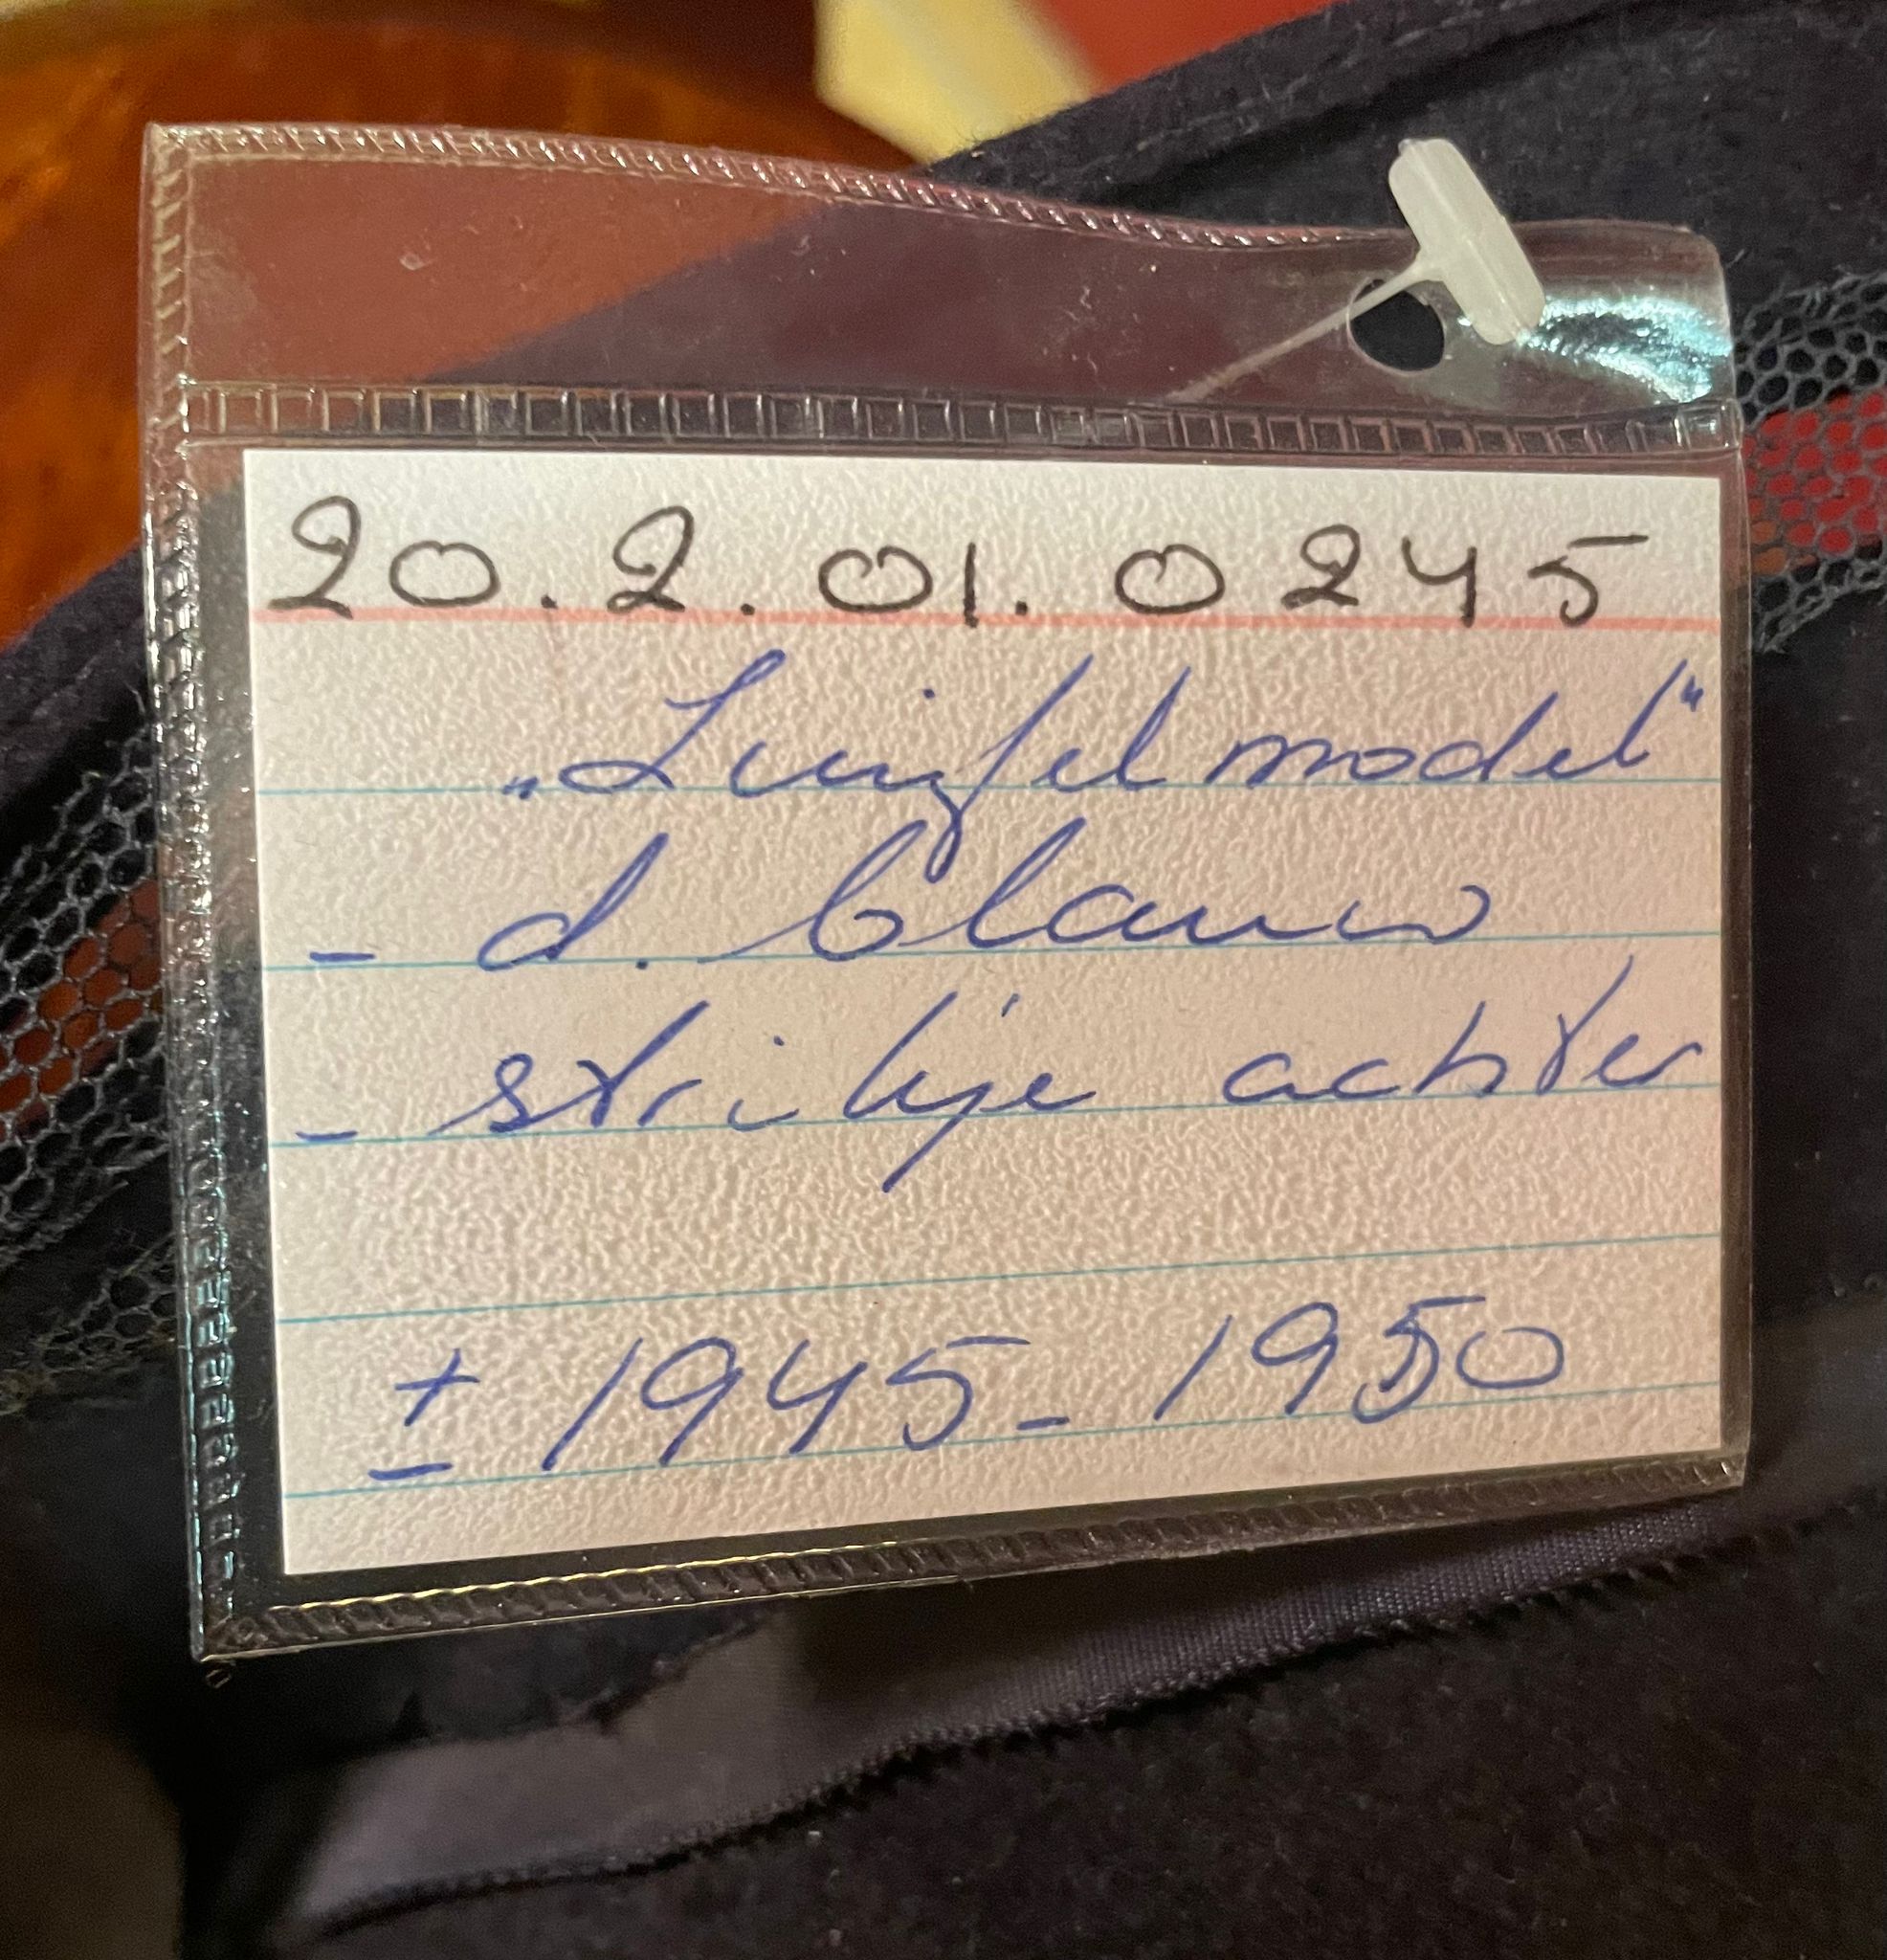 20.2.01.0245
„Luifel model“
- d. blauw
- strikje achter
± 1945-1950